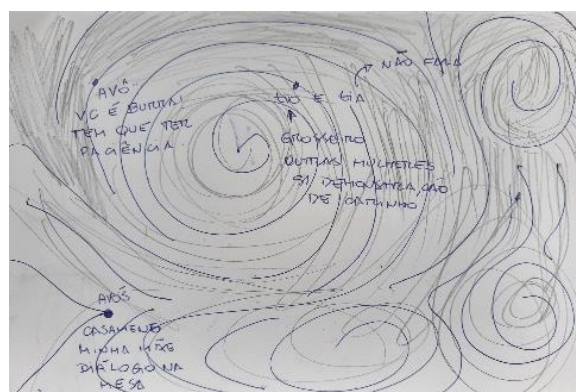 AVÔ
VC É BURRA
TEM QUE TER
PACIÊNCIA
TIO E TIA
NÃO FALA
GROSSEIRO
OUTRAS MULHERES
S/ DEMONSTRAÇÃO
DE CARINHO
AVÓS
CASAMENO
MINHA MÃE
DIÁLOGO NA
MESA